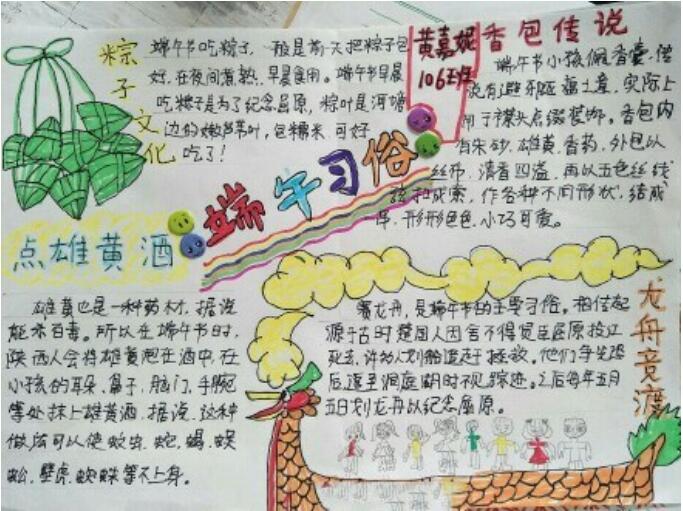 粽子文化
端午节吃粽子,一般是前一天把粽子包
好,在夜间煮熟,早晨食用。端午节早晨
吃粽子是为了纪念屈原,粽叶是河塘
边的嫩芦苇叶,包糯米,可好
吃了!
黄嘉妮
106班
香包传说
端午节小孩佩香囊,传
说有避邪驱瘟之意,实际上
用于襟头点缀装饰。香包内
有朱砂、雄黄、香药,外包以
丝布,清香四溢,再以五色丝线
弦扣成索,作各种不同形状,结成
一串,形形色色,小巧可爱。
端午习俗
点雄黄酒
雄黄也是一种药材,据说
能杀百毒。所以在端午节时,
陕西人会将雄黄泡在酒中,在
小孩的耳朵、鼻子、脑门、手腕
等处抹上雄黄酒,据说,这种
做法可以使蚊虫、蛇、蝎、蜈
蚣、壁虎、蜘蛛等不上身。
龙舟竞渡
赛龙舟,是端午节的主要习俗。相传起
源于古时楚国人因舍不得贤臣屈原投江
死去,许多人划船追赶拯救。他们争先恐
后,追至洞庭湖时不见踪迹。之后每年五月
五日划龙舟以纪念屈原。